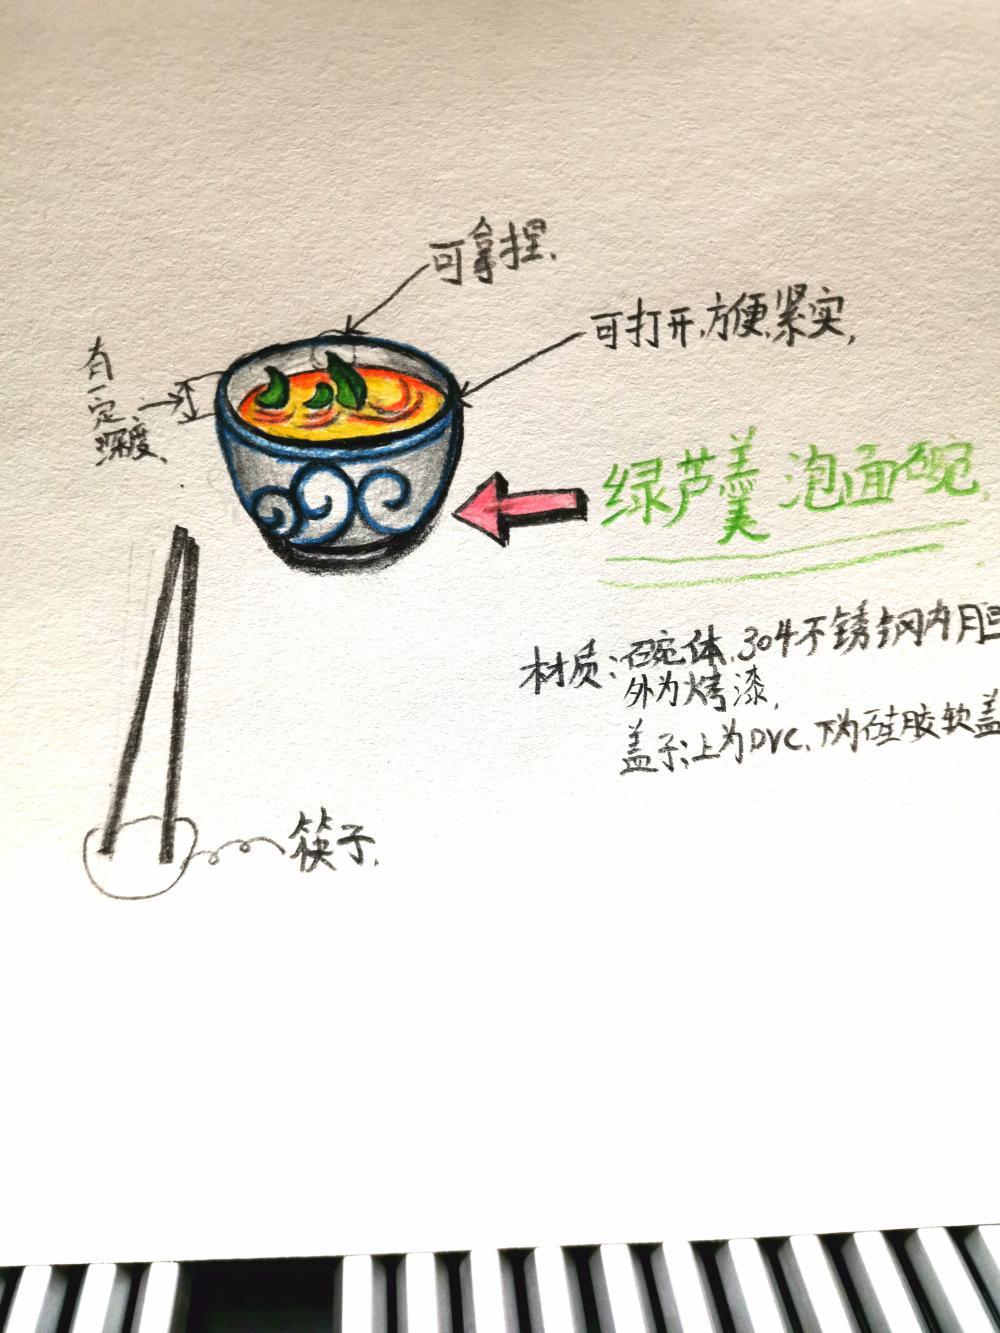 可拿捏、
可打开、方便、紧实,
有一定深度、
绿芦羹 泡面碗.
材质:碗体、304不锈钢内胆
外为烤漆,
盖子:上为PVC、下为硅胶软盖
筷子.